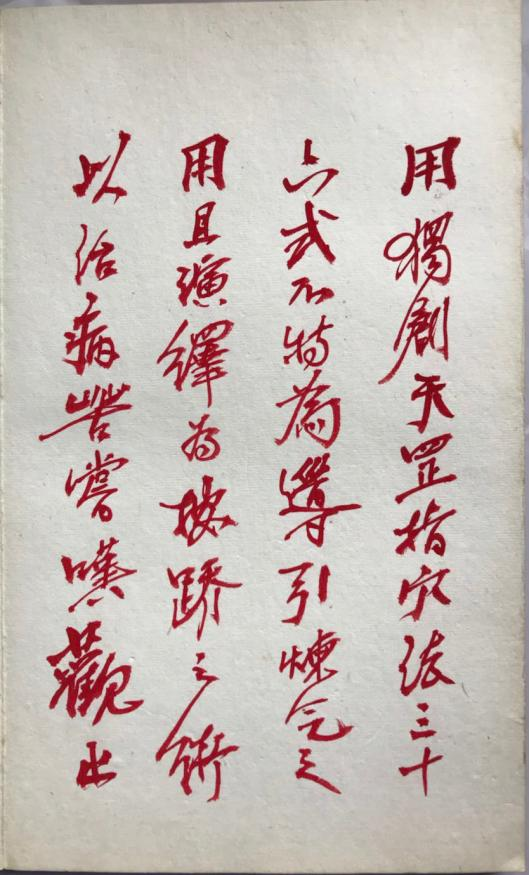 用獨創天罡指穴法三十
六式不特為導引煉氣之
用且演繹為按蹻之術
以治病嘗嘗嘆觀止